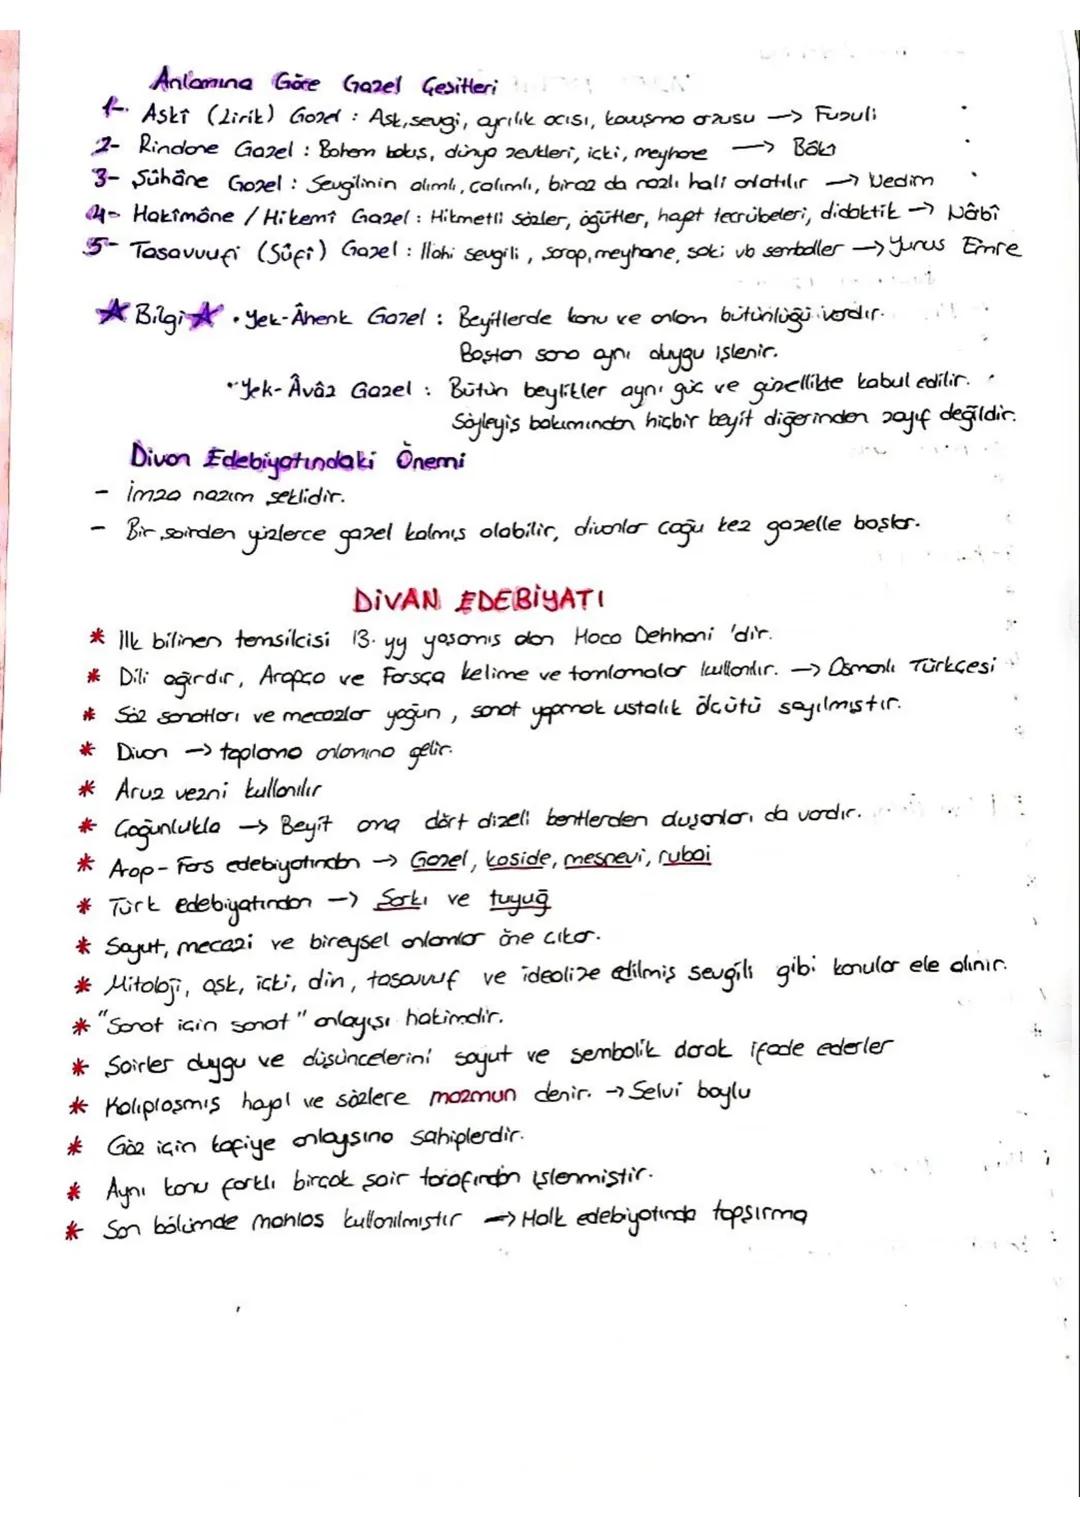 Anlamına Göre Gazel Çeşitleri
1- Aşkî (Lirik) Gazel : Aşk, sevgi, ayrılık acısı, kavuşma arzusu → Fuzuli
2- Rindane Gazel : Bohem bakış, dünya zevkleri, içki, meyhane → Bâkî
3- Şûhâne Gazel : Sevgilinin alımlı, çalımlı, biraz da nazlı hali anlatılır → Nedim
4- Hakîmâne / Hikemî Gazel : Hikmetli sözler, öğütler, hayat tecrübeleri, didaktik → Nâbî
5- Tasavvufi (Sûfî) Gazel : İlahi sevgili, şarap, meyhane, saki vb semboller → Yunus Emre
☆ Bilgi ☆ • Yek-Âhenk Gazel : Beyitlerde konu ve anlam bütünlüğü vardır.
Baştan sona aynı duygu işlenir.
• Yek-Âvâz Gazel : Bütün beylikler aynı güç ve güzellikte kabul edilir.
Söyleyiş bakımından hiçbir beyit diğerinden zayıf değildir.
Divan Edebiyatındaki Önemi
- İmza nazım şeklidir.
- Bir şairden yüzlerce gazel kalmış olabilir, divanlar çoğu kez gazelle başlar.
DİVAN EDEBİYATI
* İlk bilinen temsilcisi 13. yy yaşamış olan Hoca Dehhani 'dir.
* Dili ağırdır, Arapça ve Farsça kelime ve tamlamalar kullanılır. → Osmanlı Türkçesi
* Söz sanatları ve mecazlar yoğun, sanat yapmak ustalık ölçütü sayılmıştır.
* Divan → toplama anlamına gelir.
* Aruz vezni kullanılır
* Çoğunlukla → Beyit ama dört dizeli bentlerden oluşanları da vardır.
* Arap-Fars edebiyatından → Gazel, kaside, mesnevi, rubai
* Türk edebiyatından → Şarkı ve tuyuğ
* Soyut, mecazi ve bireysel anlamlar öne çıkar.
* Mitoloji, aşk, içki, din, tasavvuf ve idealize edilmiş sevgili gibi konular ele alınır.
* "Sanat için sanat" anlayışı hakimdir.
* Şairler duygu ve düşüncelerini soyut ve sembolik olarak ifade ederler
* Kalıplaşmış hayal ve sözlere mazmun denir. → Selvi boylu
* Göz için kafiye anlayışına sahiplerdir.
* Aynı konu farklı birçok şair tarafından işlenmiştir.
* Son bölümde mahlas kullanılmıştır → Halk edebiyatında tapşırma